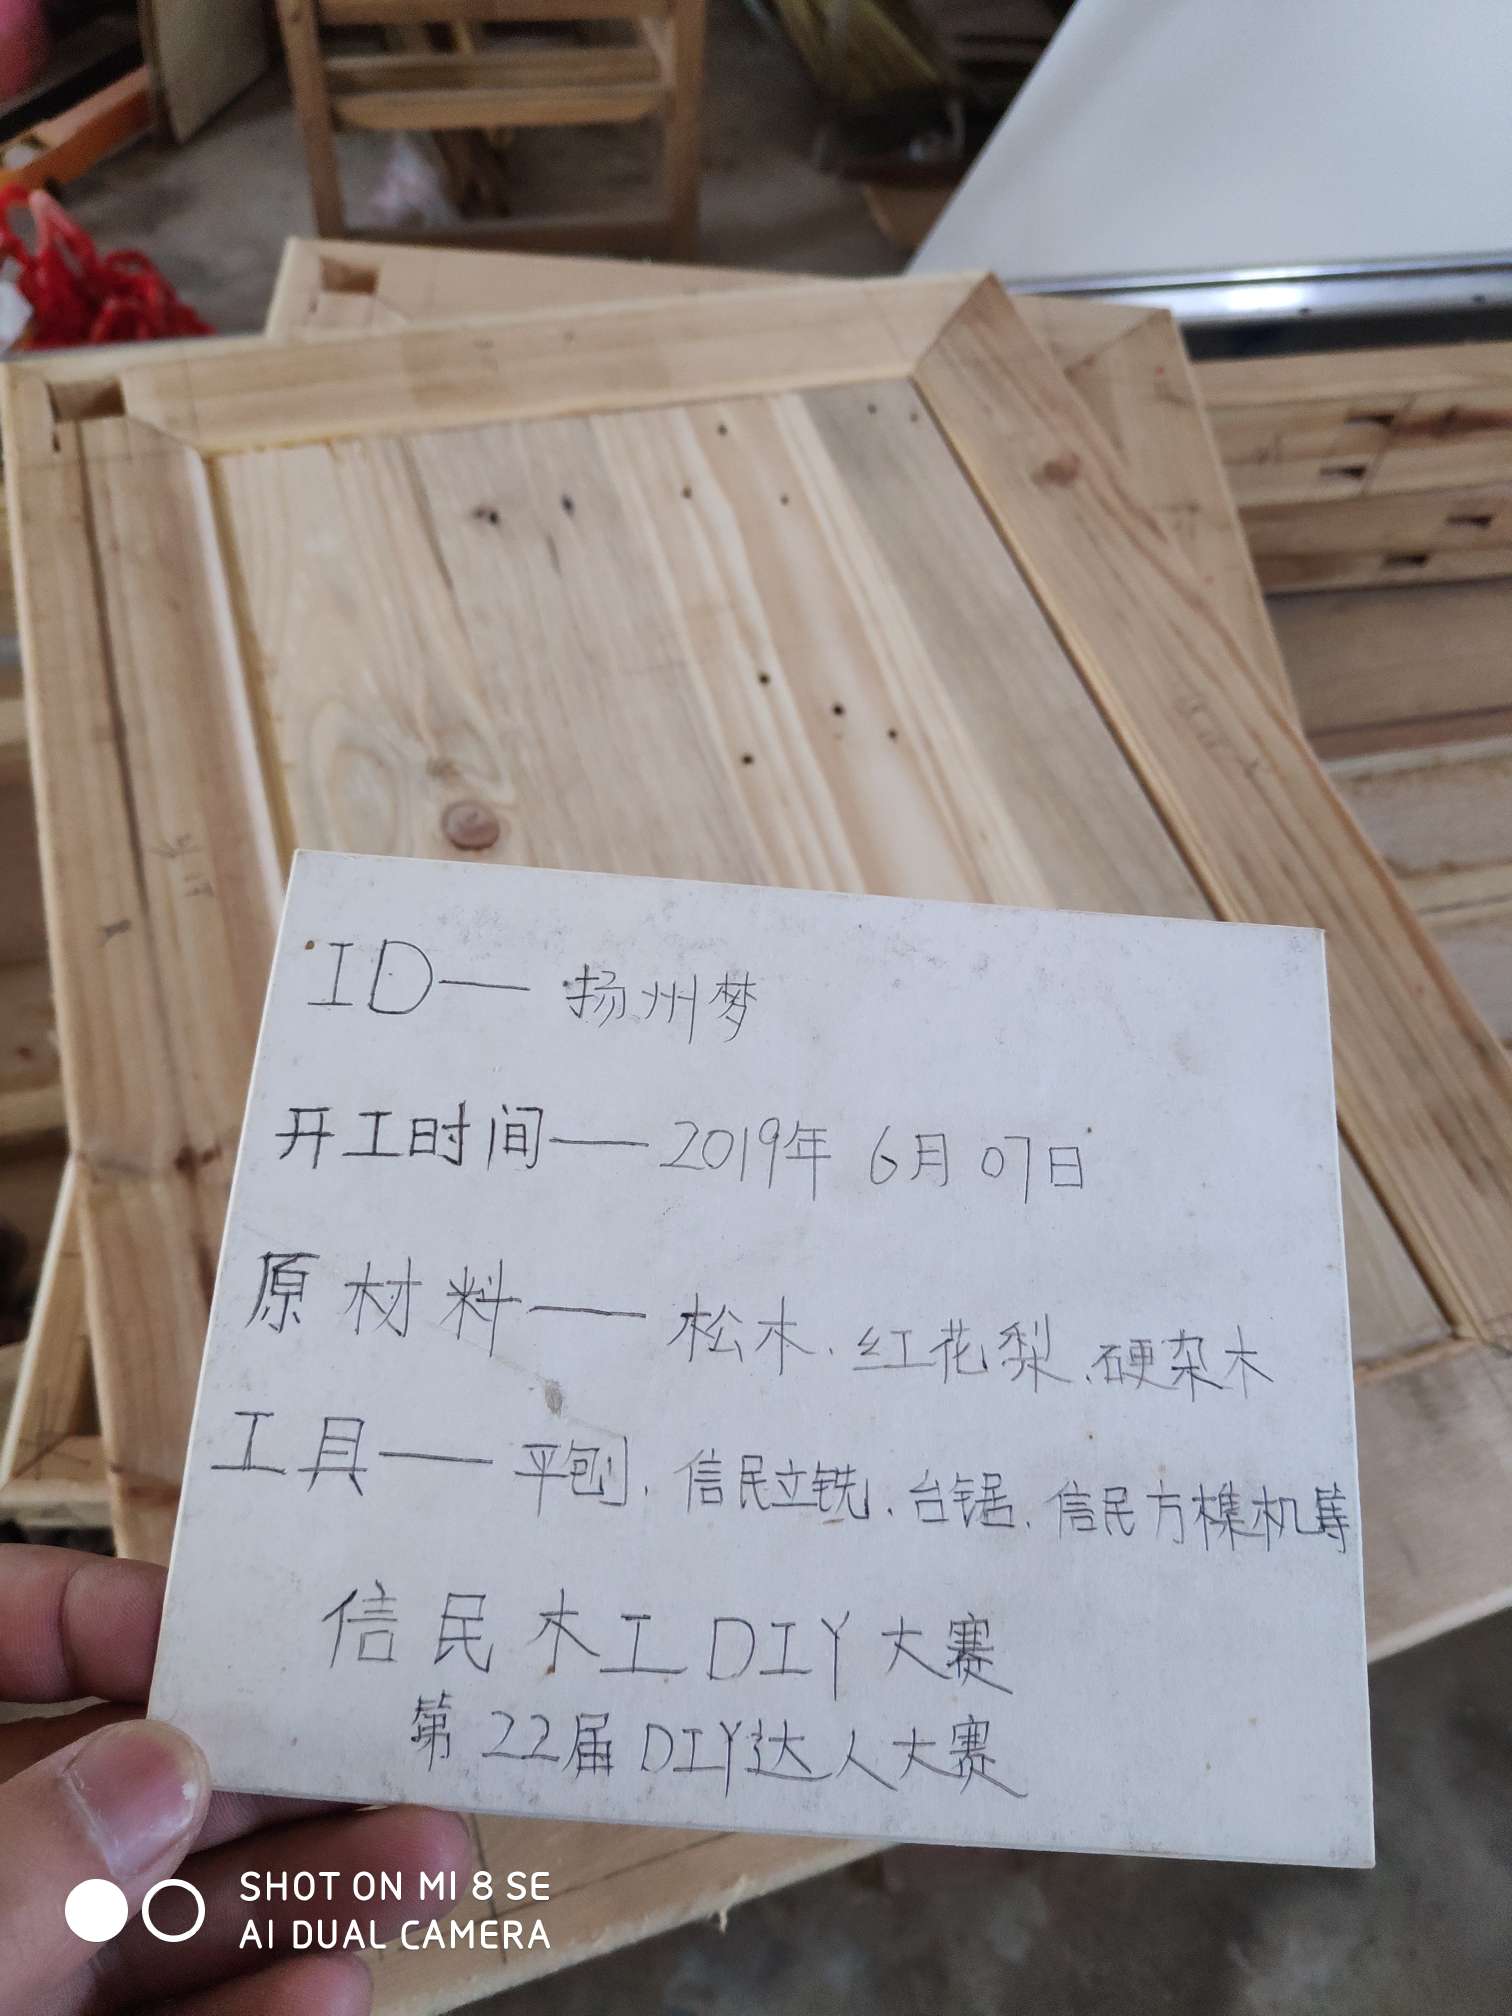 ID—扬州梦
开工时间——2019年 6月 07日
原材料——松木、红花梨、硬杂木
工具——平刨、信民立铣、台锯、信民方榫机等
信民木工DIY大赛
第22届DIY达人大赛
SHOT ON MI 8 SE
AI DUAL CAMERA